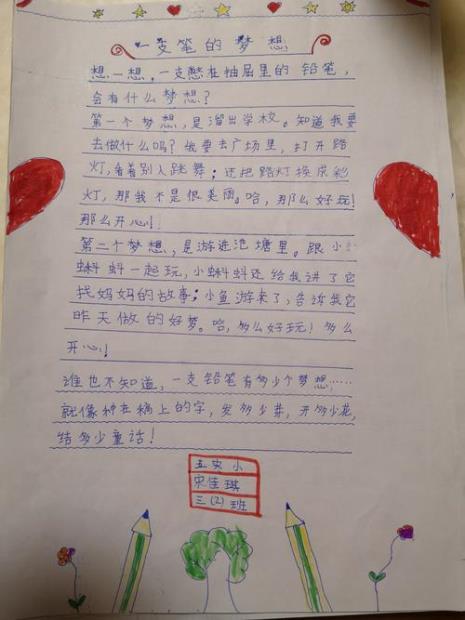 一支笔的梦想
想一想,一支憋在抽屉里的铅笔,
会有什么梦想?
第一个梦想,是溜出学校。知道我要
去做什么吗?我要去广场里,打开路
灯,看着别人跳舞;还把路灯换成彩
灯,那我不是很美丽。哈,那么好玩!
那么开心!
第二个梦想,是游进池塘里。跟小
蝌蚪一起玩,小蝌蚪还给我讲了它
找妈妈的故事;小鱼游来了,告诉我它
昨天做的好梦。哈,多么好玩!多么
开心!
谁也不知道,一支铅笔有多少个梦想……
就像种在稿上的字,发多少芽,开多少花,
结多少童话!
五实小
宋佳琪
三(2)班